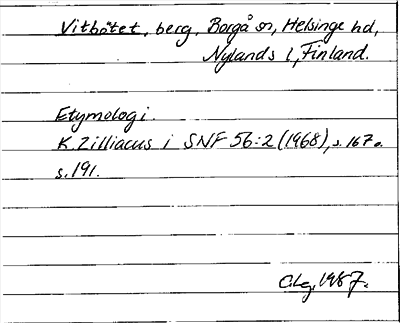 Vitbötet, berg, Borgå sn, Helsinge hd,
Nylands l, Finland.
Etymologi.
K. Zilliacus i SNF 56:2 (1968), s. 167 o.
s. 191.
C.Lg. 1987.